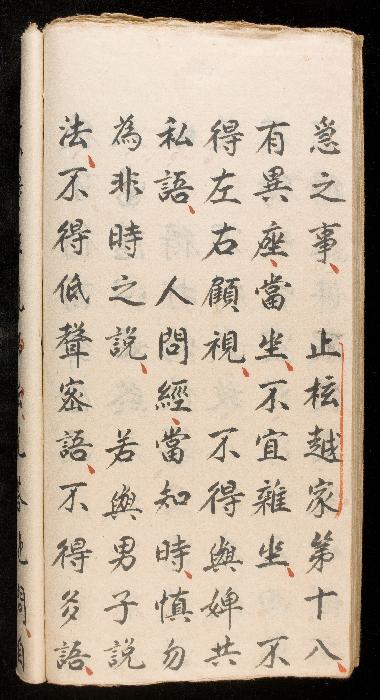 急之事、止檀越家第十八、
有異座、當坐、不宜雜坐、不
得左右顧視、不得與婢共
私語、人問經、當知時、慎勿
為非時之說、若與男子說
法、不得低聲密語、不得多語、